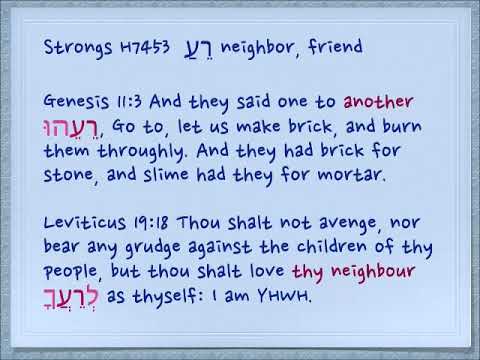 Strongs H7453 רֵעַ neighbor, friend
Genesis 11:3 And they said one to another
רֵעֵהוּ, Go to, let us make brick, and burn
them throughly. And they had brick for
stone, and slime had they for mortar.
Leviticus 19:18 Thou shalt not avenge, nor
bear any grudge against the children of thy
people, but thou shalt love thy neighbour
לְרֵעֲךָ as thyself: I am YHWH.